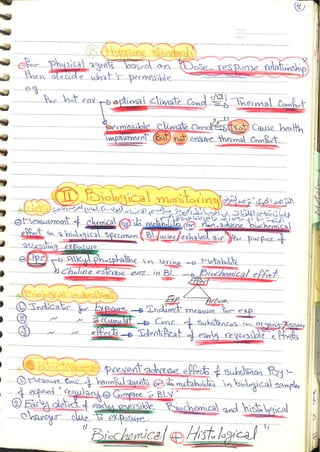 4
B Hygiene standards
For physical agents based on "Dose response relationship"
then decide what's permissible
e.g.
For hot env. → optimal climatic Cond. → Thermal Comfort
→ permissible Climatic Cond → Not Cause health
impairment But not ensure thermal comfort.
II Biological monitoring
Measurement of chemical or its metabolite or non adverse biochemical
effect in a biological specimen (Bl/urine/exhaled air) for purpose of
assessing exposure
→ Alkyl phosphatase in urine → Metabolite
↳ choline esterase enz. in Bl. → Biochemical effect.
Effect
Exp. Accum.
Biological indicators
① Indicator for Exposure → Indirect measure for exp
② accumulat → Conc. of substances in organ/tissue
③ " " effects → Identificat of early reversible effects
prevent adverse effects of substances By:-
① Measure Conc. of harmful agents or its metabolites in biological samples
of exposed "regularly" Compare = BLV
② Early detect of early reversible Biochemical and histological
changes due to exposure
"Biochemical + Histological"